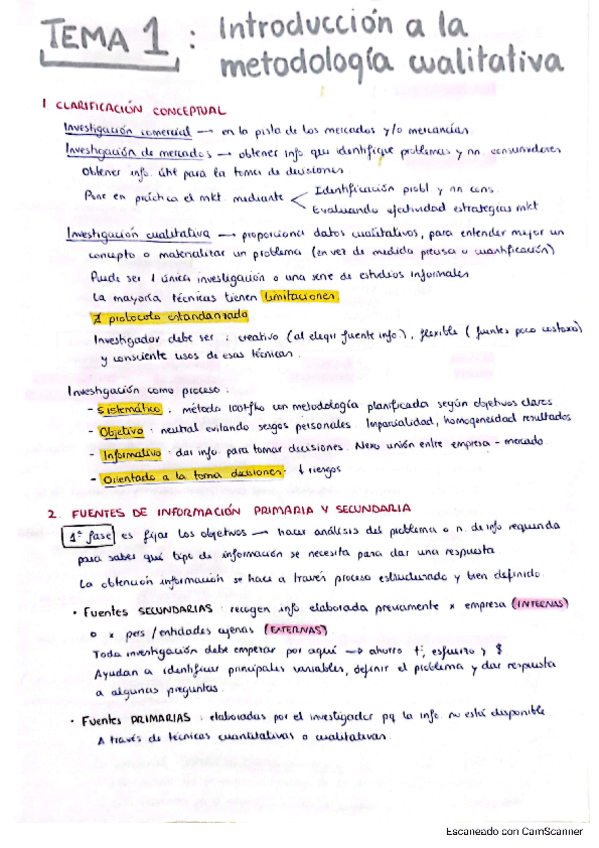 TEMA 1 : Introducción a la
metodología cualitativa
1 CLARIFICACIÓN CONCEPTUAL
Investigación comercial → en la pista de los mercados y/o mercancías.
Investigación de mercados → obtener info que identifique problemas y nn. consumidores
Obtener info. útil para la toma de decisiones
Pone en práctica el mkt. mediante < Identificación probl y nn cons.
Evaluando efectividad estrategias mkt
Investigación cualitativa → proporciona datos cualitativos, para entender mejor un
concepto o materializar un problema (en vez de medida precisa o cuantificación)
Puede ser 1 única investigación o una serie de estudios informales
La mayoría técnicas tienen limitaciones
∄ protocolo estandarizado
Investigador debe ser : creativo (al elegir fuente info.), flexible (fuentes poco costosas)
y consciente usos de esas técnicas.
Investigación como proceso :
- Sistemático : método 100tfko con metodología planificada según objetivos claros
- Objetivo : neutral evitando sesgos personales. Imparcialidad, homogeneidad resultados
- Informativo : dar info. para tomar decisiones. Nexo unión entre empresa - mercado.
- Orientado a la toma decisiones: ↓ riesgos
2. FUENTES DE INFORMACIÓN PRIMARIA Y SECUNDARIA
1ª fase es fijar los objetivos → hacer análisis del problema o n. de info requerida
para saber qué tipo de información se necesita para dar una respuesta
La obtención información se hace a través proceso estructurado y bien definido.
• Fuentes SECUNDARIAS : recogen info. elaborada previamente x empresa (INTERNAS)
o x pers / entidades ajenas (EXTERNAS).
Toda investigación debe empezar por aquí → ahorro t, esfuerzo y $
Ayudan a identificar principales variables, definir el problema y dar respuesta
a algunas preguntas.
• Fuentes PRIMARIAS : elaboradas por el investigador pq la info. no está disponible
A través de técnicas cuantitativas o cualitativas.
Escaneado con CamScanner